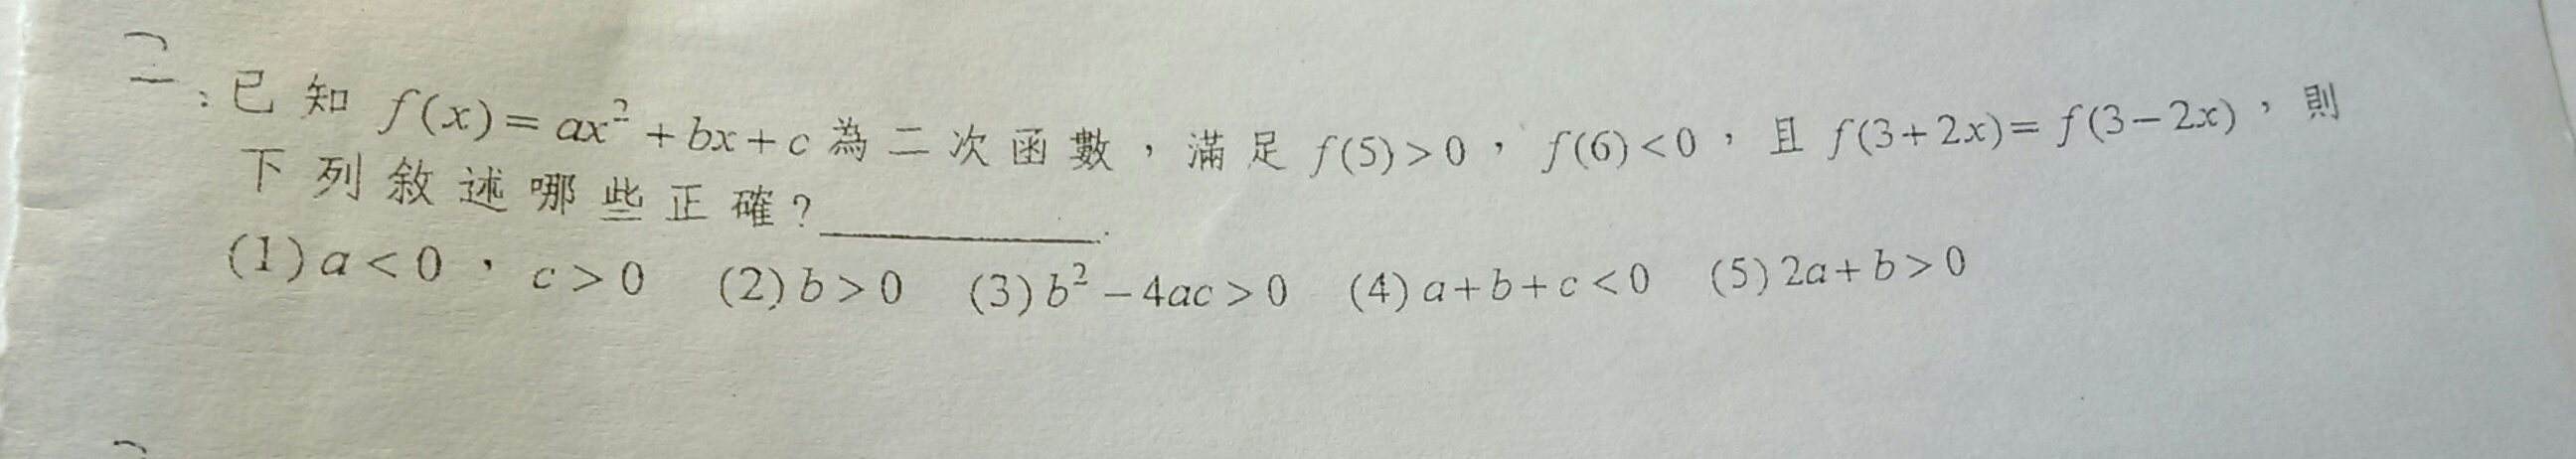 二:已知 f(x)=ax²+bx+c為二次函數,滿足f(5)>0,f(6)<0,且f(3+2x)=f(3-2x),則
下列敘述哪些正確?________.
(1)a<0,c>0 (2)b>0 (3)b²-4ac>0 (4)a+b+c<0 (5)2a+b>0